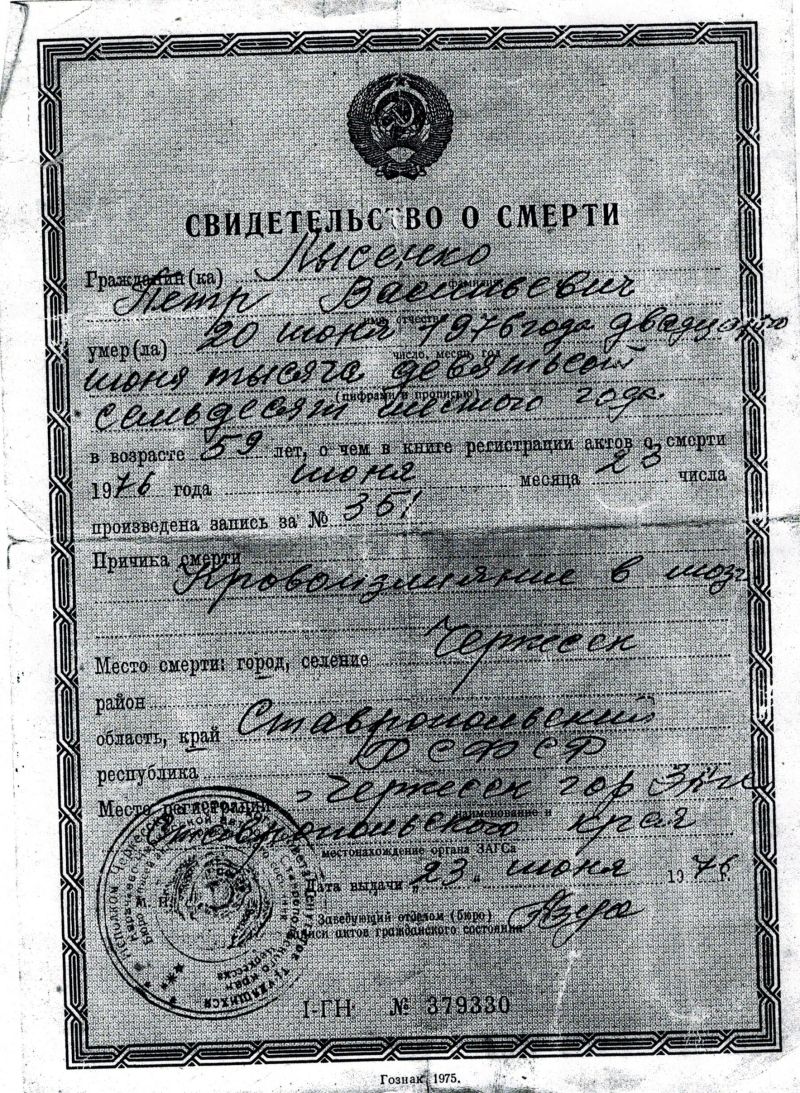 СВИДЕТЕЛЬСТВО О СМЕРТИ
Гражданин(ка) Лысенко
фамилия
Петр Васильевич
имя, отчество
умер(ла) 20 июня 1976 года двадцатого
число, месяц, год
июня тысяча девятьсот
(цифрами и прописью)
семьдесят шестого года
в возрасте 59 лет, о чем в книге регистрации актов о смерти
1976 года июня месяца 23 числа
произведена запись за № 351
Причина смерти
Кровоизлияние в мозг
Место смерти: город, селение Черкесск
район
область, край Ставропольский
республика РСФСР
Место регистрации Черкесск гор
наименование и
Ставропольского края
местонахождение органа ЗАГСа
Дата выдачи „23„ июня 1976 г.
Заведующий отделом (бюро)
записи актов гражданского состояния
I-ГН № 379330
Гознак 1975.